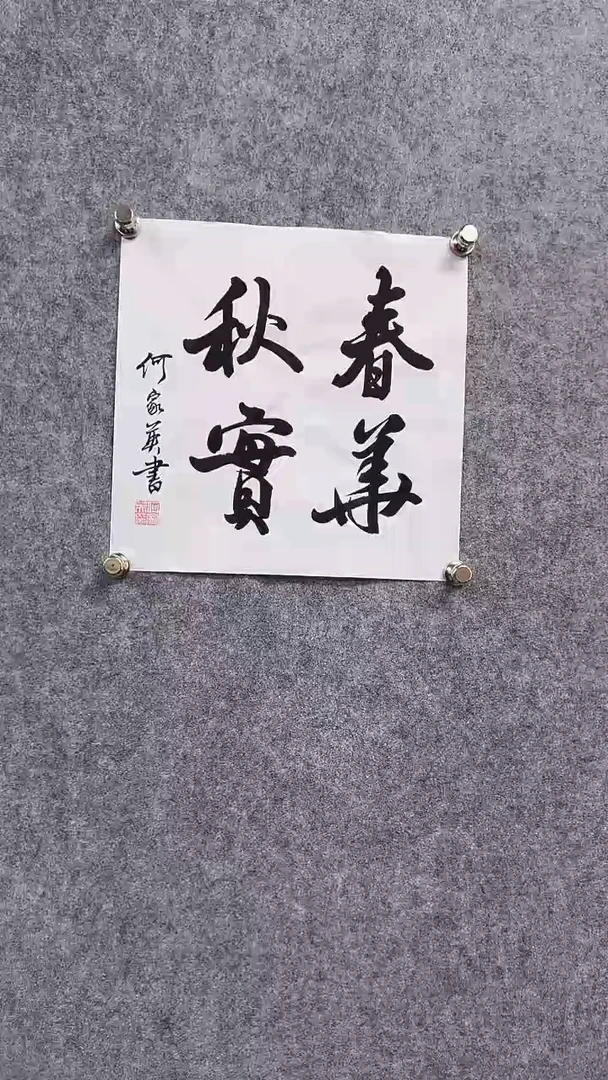 春華
秋實
何家英書